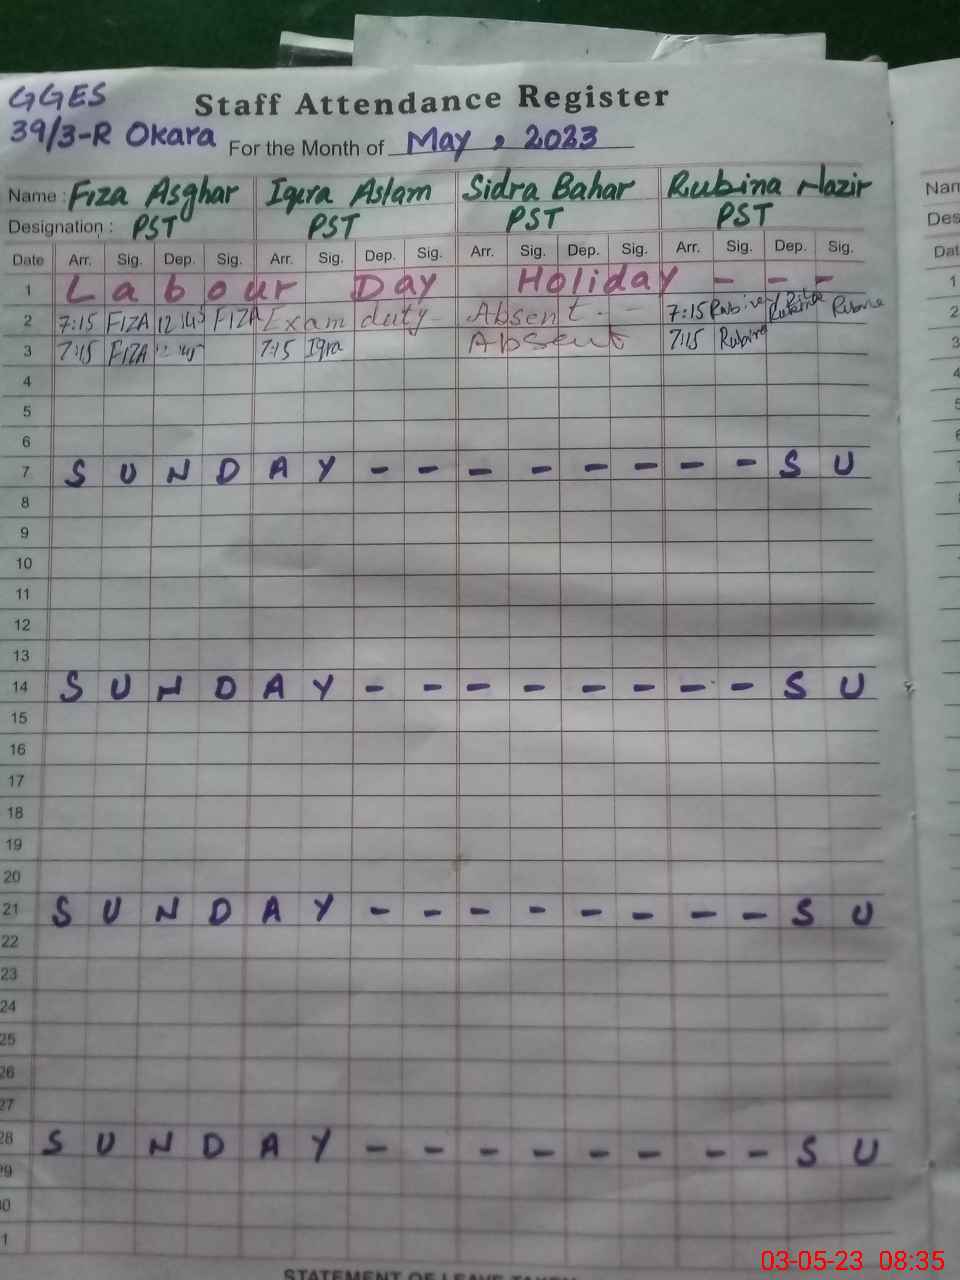 GGES
Staff Attendance Register
39/3-R Okara
For the Month of May, 2023
Name : Fiza Asghar Iqra Aslam Sidra Bahar Rubina Nazir
Designation : PST PST PST PST
Date Arr. Sig. Dep. Sig. Arr. Sig. Dep. Sig. Arr. Sig. Dep. Sig. Arr. Sig. Dep. Sig.
1 Labour Day Holiday - - -
2 7:15 FIZA 12:45 FIZA Exam duty - Absent - - 7:15 Rubina Rubina Rubina
3 7:15 FIZA 12:45 7:15 Iqra Absent 7:15 Rubina
4
5
6
7 S U N D A Y - - - - - - - - S U
8
9
10
11
12
13
14 S U N D A Y - - - - - - - - S U
15
16
17
18
19
20
21 S U N D A Y - - - - - - - - S U
22
23
24
25
26
27
28 S U N D A Y - - - - - - - - S U
29
0
1
STATEMENT OF LEAVE TAKEN
Nam
Des
Dat
1
2
3
4
5
6
03-05-23 08:35